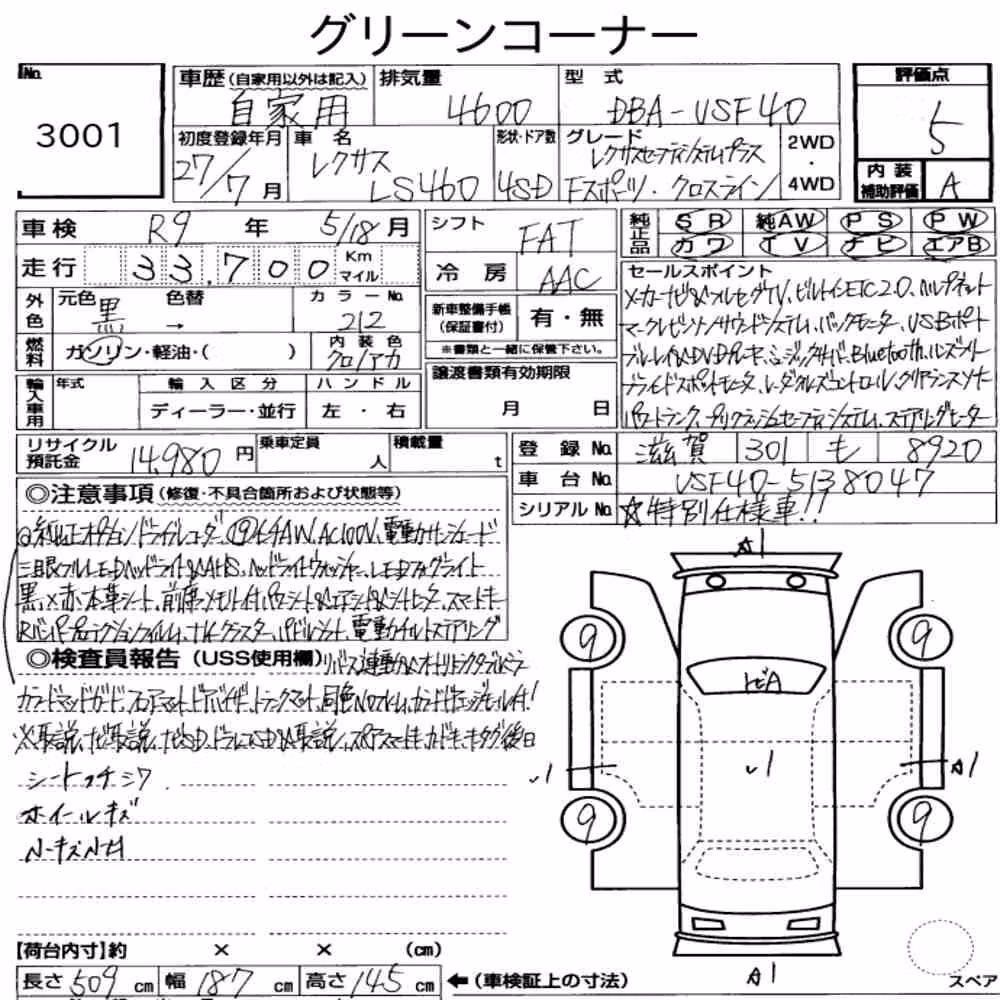 グリーンコーナー
No. 3001
車歴(自家用以外は記入) 自家用
排気量 4600
型式 DBA-USF40
評価点 5
内装補助評価 A
初度登録年月 27/7月
車名 レクサス LS460
形状・ドア数 4SD
グレード レクサスセーフティシステムプラス
Fスポーツ・クロスライン
2WD・4WD
車検 R9年 5/18月
走行 33,700 Km マイル
シフト FAT
冷房 AAC
純正品 SR 純AW PS PW
カワ TV ナビ エアB
外色 元色 黒 → 色替
カラーNo. 212
燃料 ガソリン・軽油・( )
内装色 クロ/アカ
新車整備手帳(保証書付) 有・無
※書類と一緒に保管下さい。
輸入車用 年式 輸入区分 ディーラー・並行 ハンドル 左・右
譲渡書類有効期限 月 日
セールスポイント
メーカーナビ&フルセグTV、ビルトインETC2.0、ヘルプネット
マークレビンソンサウンドシステム、バックモニター、USBポート
ブルーレイ&DVDプレーヤー、ミュージックサーバー、Bluetooth、
ブラインドスポットモニター、レーダークルーズコントロール、クリアランスソナー
パワートランク、プリクラッシュセーフティシステム、ステアリングヒーター
リサイクル預託金 14,980円
乗車定員 人
積載量 t
登録No. 滋賀 301 も 8920
車台No. USF40-5138047
シリアルNo. ☆特別仕様車!!
◎注意事項(修復・不具合箇所および状態等)
純正オプションドライブレコーダー、⑲インチAW、AC100V、電動サンシェード
三眼フルLEDヘッドライト&AHS、ヘッドライトウォッシャー、LEDフォグライト
黒×赤本革シート、前席メモリー付パワーシート&エアシート&シートヒーター、スマートキー
プロテクションフィルム、パドルシフト、電動チルトステアリング
◎検査員報告(USS使用欄)
リバース連動
フロアマット、ドアバイザー、トランクマット、同色Noフレーム
※取説、ナビ取説、ナビSD、ドラレコSD&取説、スペアスマートキー、カードキー、キータグ後日
シートコゲ シワ
ホイールキズ
A1
9
9
トビA
√1
√1
A1
9
9
A1
【荷台内寸】約 × × (cm)
長さ 509 cm 幅 187 cm 高さ 145 cm ←(車検証上の寸法)
スペア